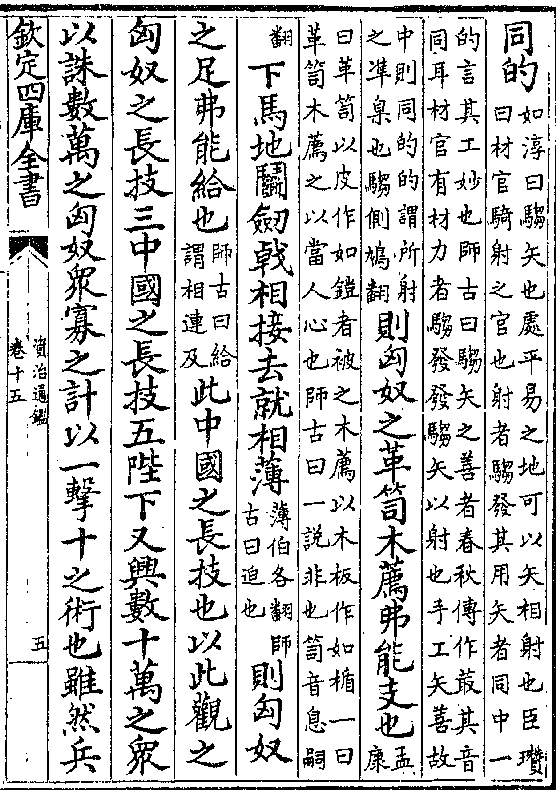 同的如淳曰騶矢也處平易之地可以矢相射也臣瓚曰材官騎射之官也射者騶發其用矢者同中一
的言其工妙也師古曰騶矢之善者春秋傳作菆其音同耳材官有材力者騶發發騶矢以射也手工矢善故
中則同的的謂所射之凖臬也騶側鳩翻則匈奴之革笥木薦弗能支也孟康
曰革笥以皮作如鎧者被之木薦以木板作如楯一曰革笥木薦之以當人心也師古曰一説非也笥音息嗣
翻下馬地鬬劒戟相接去就相薄薄伯各翻師古曰迫也則匈奴
之足弗能給也師古曰給謂相連及此中國之長技也以此觀之
匈奴之長技三中國之長技五陛下又興數十萬之衆
以誅數萬之匈奴衆寡之計以一擊十之術也雖然兵
欽定四庫全書
資治通鑑
卷十五
五